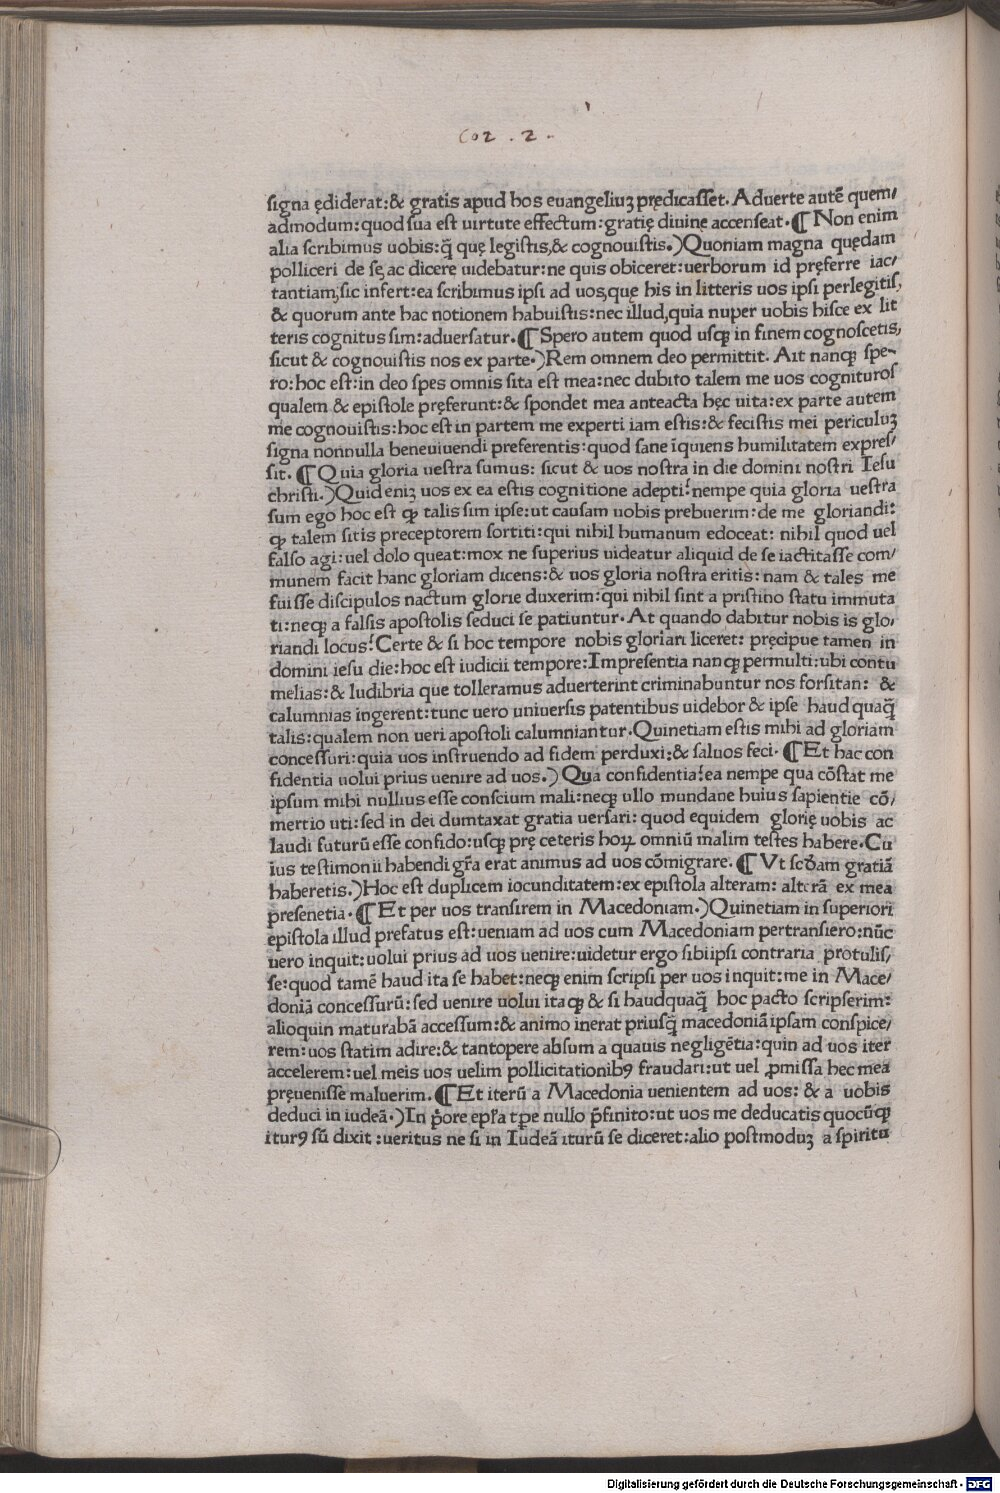 Cor . 2 .
signa ędiderat:& gratis apud hos euangeliuꝫ prędicasset. Aduerte autē quem/
admodum:quod sua est uirtute effectum:gratię diuinę accenseat. ¶ Non enim
alia scribimus uobis:q̄ quę legistis,& cognouistis.) Quoniam magna quędam
polliceri de se,ac dicere uidebatur:ne quis obiceret:uerborum id pręferre iac/
tantiam,sic infert:ea scribimus ipsi ad uos,quę his in litteris uos ipsi perlegitis,
& quorum ante hac notionem habuistis:nec illud,quia nuper uobis hisce ex lit
teris cognitus sim:aduersatur. ¶ Spero autem quod usqꝫ in finem cognoscetis,
sicut & cognouistis nos ex parte.) Rem omnem deo permittit. Ait nanqꝫ spe-
ro:hoc est:in deo spes omnis sita est mea:nec dubito talem me uos cognituros
qualem & epistole pręferunt:& spondet mea anteacta hęc uita:ex parte autem
me cognouistis:hoc est in partem me experti iam estis:& fecistis mei periculuꝫ
signa nonnulla beneuiuendi preferentis:quod sane īquiens humilitatem expres/
sit. ¶ Quia gloria uestra sumus: sicut & uos nostra in die domini nostri Iesu
christi.) Quid eniꝫ uos ex ea estis cognitione adepti? nempe quia gloria uestra
sum ego hoc est qꝫ talis sim ipse:ut causam uobis prebuerim:de me gloriandi:
qꝫ talem sitis preceptorem sortiti:qui nihil humanum edoceat: nihil quod uel
falso agi:uel dolo queat:mox ne superius uideatur aliquid de se iactitasse com/
munem facit hanc gloriam dicens:& uos gloria nostra eritis: nam & tales me
fuisse discipulos nactum glorie duxerim:qui nihil sint a pristino statu immuta
ti:neqꝫ a falsis apostolis seduci se patiuntur. At quando dabitur nobis is glo/
riandi locus? Certe & si hoc tempore nobis gloriari liceret: pręcipue tamen in
domini iesu die:hoc est iudicii tempore:Impresentia nanqꝫ permulti:ubi contu
melias:& ludibria que tolleramus aduerterint criminabuntur nos forsitan: &
calumnias ingerent:tunc uero uniuersis patentibus uidebor & ipse haud quaq̄
talis:qualem non ueri apostoli calumniantur. Quinetiam estis mihi ad gloriam
concessuri:quia uos instruendo ad fidem perduxi:& saluos feci. ¶ Et hac con
fidentia uolui prius uenire ad uos.) Qua confidentia? ea nempe qua cōstat me
ipsum mihi nullius esse conscium mali:neqꝫ ullo mundane huius sapientie cō/
mertio uti:sed in dei dumtaxat gratia uersari: quod equidem glorię uobis ac
laudi futurū esse confido:usqꝫ prę ceteris hoꝝ omniū malim testes habere. Cu
ius testimonii habendi gr̄a erat animus ad uos cōmigrare. ¶ Vt scđam gratiā
haberetis.) Hoc est duplicem iocunditatem:ex epistola alteram: alterā ex mea
presenetia. ¶ Et per uos transirem in Macedoniam.) Quinetiam in superiori
epistola illud prefatus est:ueniam ad uos cum Macedoniam pertransiero:nūc
uero inquit:uolui prius ad uos uenire:uidetur ergo sibiipsi contraria protulis/
se:quod tamē haud ita se habet:neqꝫ enim scripsi per uos inquit:me in Mace/
doniā concessurū:sed uenire uolui itaqꝫ & si haudquaq̄ hoc pacto scripserim:
alioquin maturabā accessum:& animo inerat priusq̄ macedoniā ipsam conspice/
rem:uos statim adire:& tantopere absum a quauis negligētia:quin ad uos iter
accelerem:uel meis uos uelim pollicitationibꝰ fraudari:ut uel ꝓmissa hec mea
pręuenisse maluerim. ¶ Et iterū a Macedonia uenientem ad uos: & a uobis
deduci in iudeā.) In p̄ore epr̄a tꝑe nullo p̄finito:ut uos me deducatis quocūqꝫ
iturꝰ sū dixit :ueritus ne si in Iudeā iturū se diceret:alio postmoduꝫ a spiritu
Digitalisierung gefördert durch die Deutsche Forschungsgemeinschaft - DFG